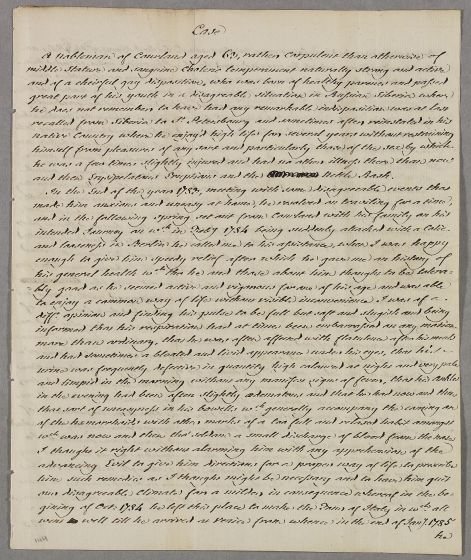 Case
A nobleman of Courland aged 63, rather Corpulent than otherwise of
middle Stature and sanguine Choleric temperament naturally strong and active
and of a cheerful gay disposition, who was born of healthy parents and passed
great part of his youth in a disagreeable situation in Russian Siberia where
he does not remember to have had any remarkable indisposition was at last
recalled from Siberia to St. Petersbourg and sometime after reinstated in his
native Country where he enjoy'd high life for several years without restraining
himself from pleasures of any sort and particularly those of the sex by which
he was a few times slightly injured and had no other illness there than now
and then Erysipelatous Eruptions and the Nettle Rash.
In the End of the year 1783, meeting with some disagreeable events that
made him anxious and uneasy at home, he resolved on travelling for a time,
and in the following spring set out from Courland with his family on his
intended Journey on wch in July 1784 being suddenly attacked with a Colic
and looseness in Berlin he called me to his assistance, when I was happy
enough to give him speedy relief after which he gave me an history of
his general health wch tho he and those about him thought to be tolera-
-bly good as he seemed active and vigorous for one of his age and was able
to enjoy a common way of life without visible inconvenience I was of a
diff. opinion and finding his pulse to be full but soft and slugish and being
informed that his respiration had at times been embarrassed on any motion
more than ordinary, that he was often affected with flatulence after his meals
and had sometimes a bloated and livid appearance under his eyes, that his u-
-rine was frequently defective in quantity high coloured at nights and very pale
and limpid in the morning without any manifest signs of fever, that his Ankles
in the evening had been often slightly œdematous and that he had now and then
that sort of uneasyness in his bowels wch generally accompany the coming on
of the hæmorrhoids with other marks of a too full and relaxed habit amongst
wch was now and then tho' seldom a small discharge of blood from the nose
I thought it right without alarming him with any apprehension of the
advancing Evil to give him directions for a proper way of life to prescribe
him such remedies as I thought might be necessary and to have him quit
our disagreeable climate for a milder, in consequence whereof in the be-
ginning of Octr. 1784 he left this place to make the Tour of Italy in wch all
went well till he arrived at Venice from whence in the end of Jany. 1785
he